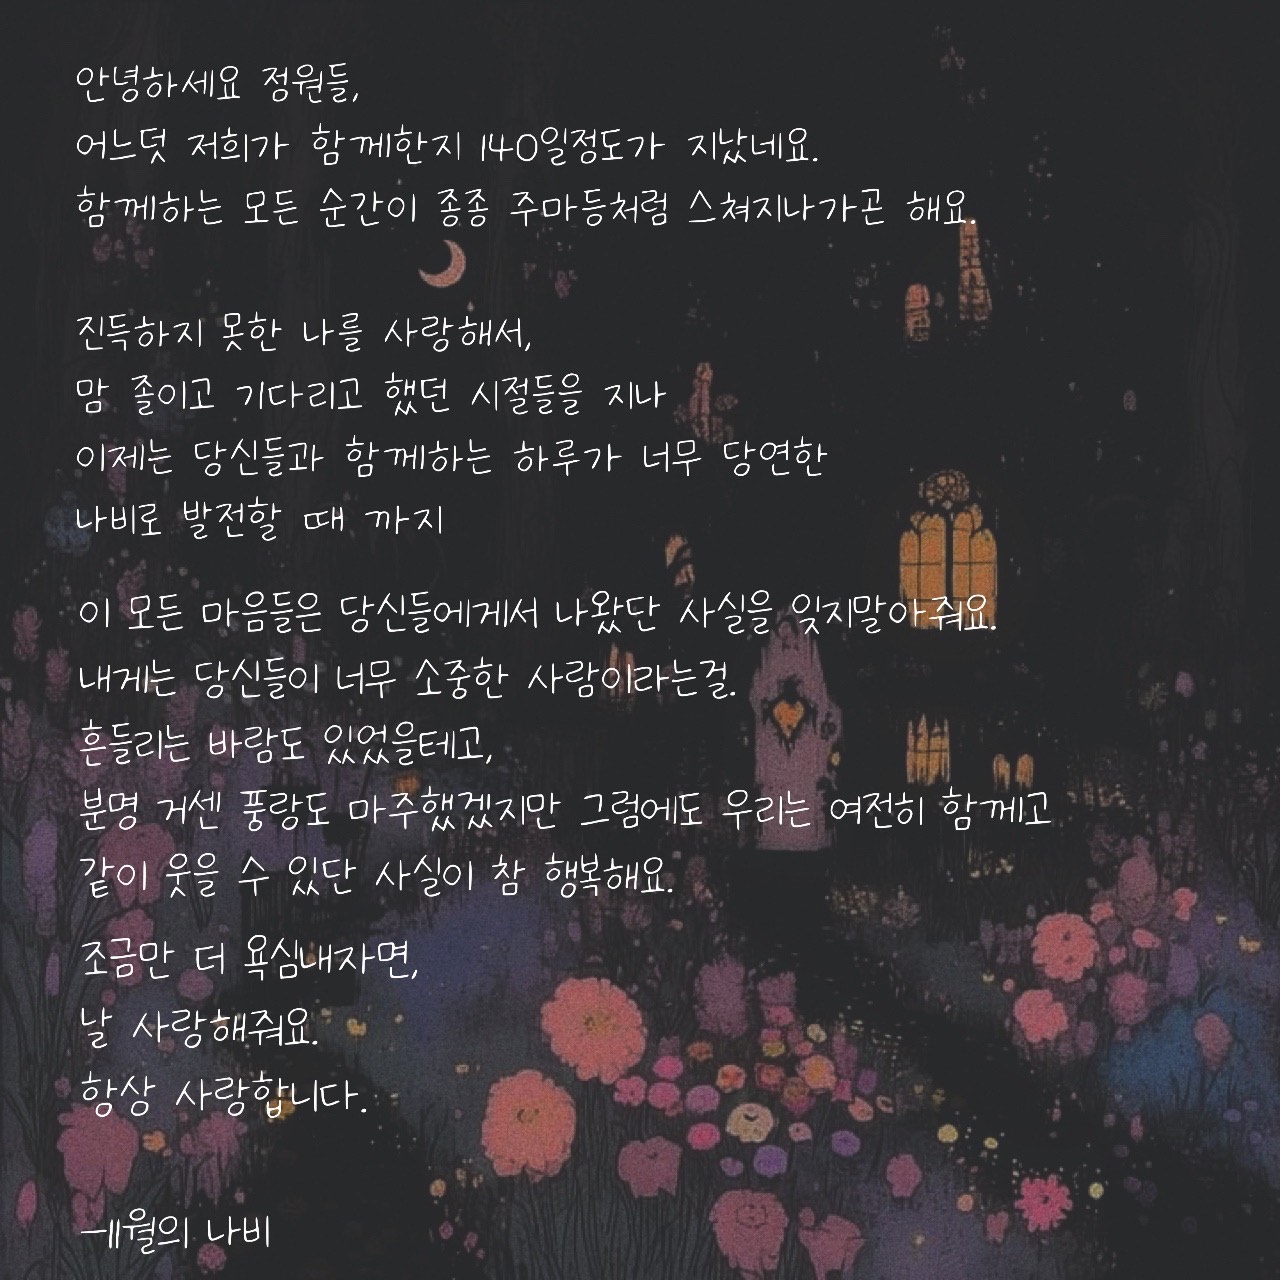 안녕하세요 정원들,
어느덧 저희가 함께한지 140일정도가 지났네요.
함께하는 모든 순간이 종종 주마등처럼 스쳐지나가곤 해요.
진득하지 못한 나를 사랑해서,
맘 졸이고 기다리고 했던 시절들을 지나
이제는 당신들과 함께하는 하루가 너무 당연한
나비로 발전할 때 까지
이 모든 마음들은 당신들에게서 나왔단 사실을 잊지말아줘요.
내게는 당신들이 너무 소중한 사람이라는걸.
흔들리는 바람도 있었을테고,
분명 거센 풍랑도 마주했겠지만 그럼에도 우리는 여전히 함께고
같이 웃을 수 있단 사실이 참 행복해요.
조금만 더 욕심내자면,
날 사랑해줘요.
항상 사랑합니다.
-세월의 나비